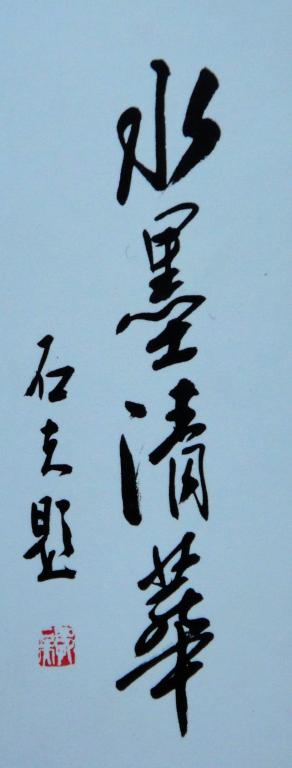 水墨清華
石克題